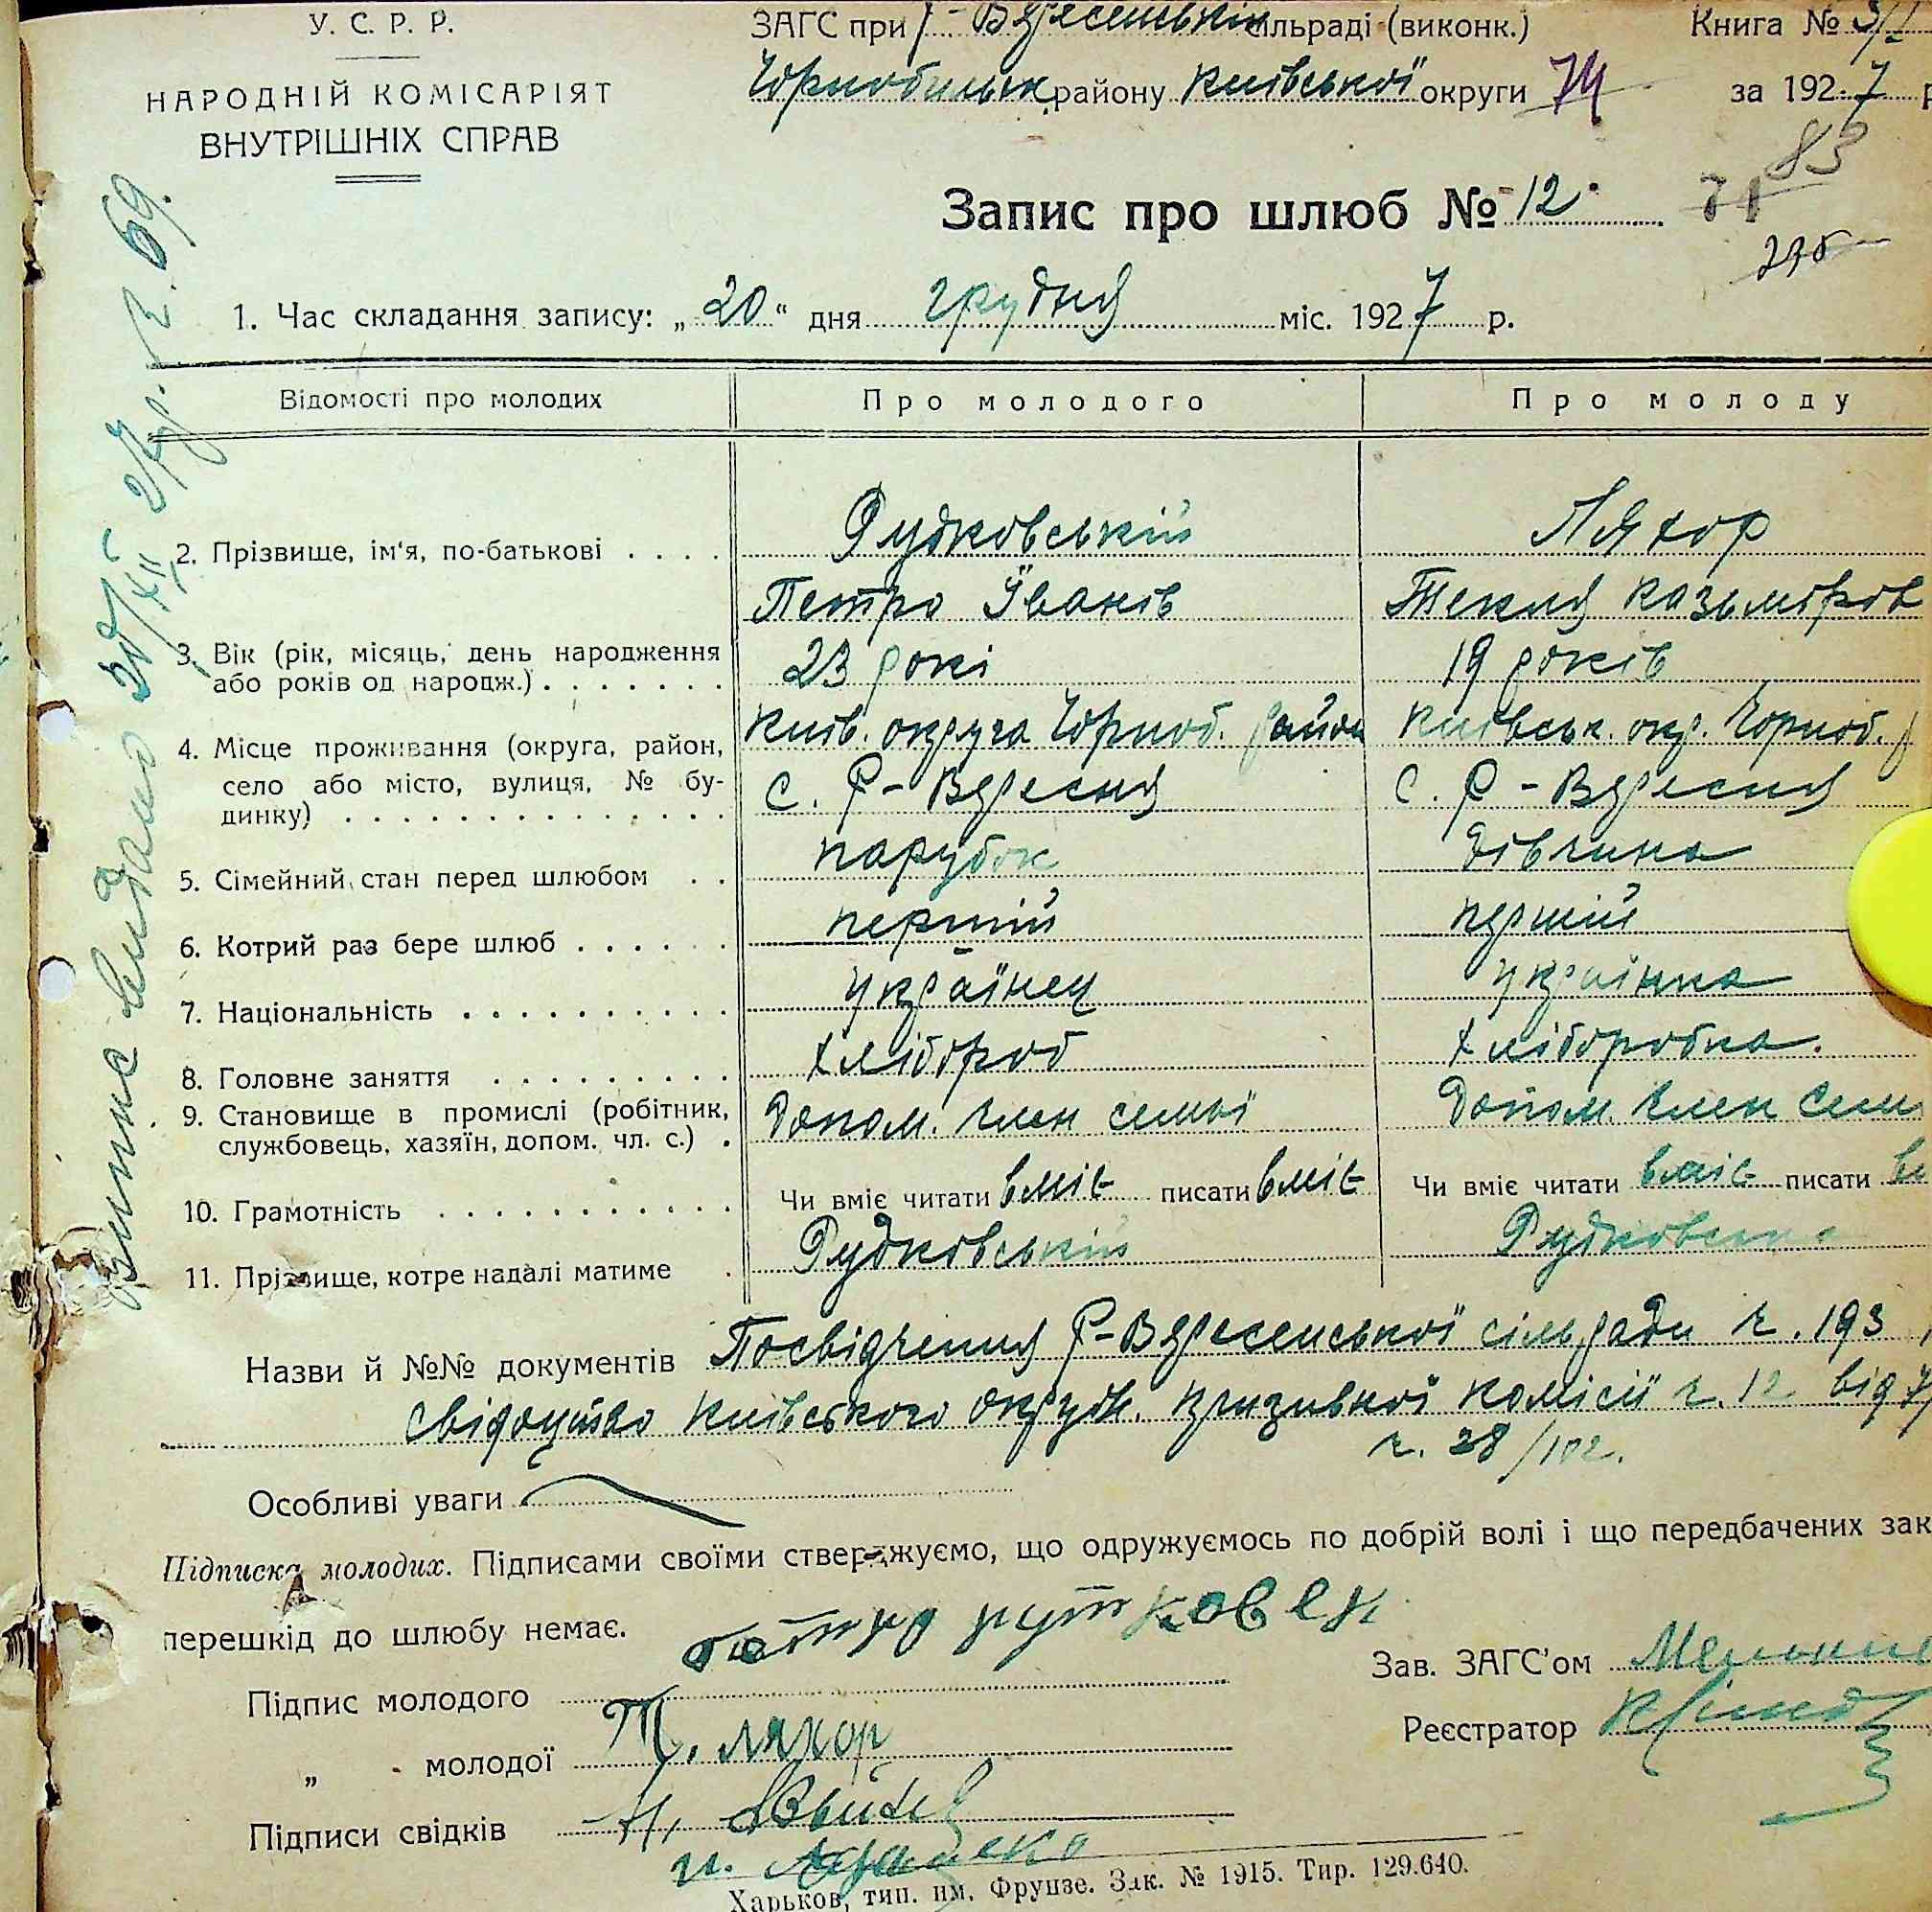 У. С. Р. Р.
НАРОДНІЙ КОМІСАРІЯТ
ВНУТРІШНІХ СПРАВ
ЗАГС при Р-Вересенській сільраді (виконк.)
Чорнобильск. району Київської округи 74
Книга №
за 1927 р
Запис про шлюб № 12.
83
71
1. Час складання запису: „20“ дня грудня міс. 1927 р.
Відомості про молодих Про молодого Про молоду
2. Прізвище, ім‘я, по-батькові . . . . Рудковський Ляхор
Петро Іванів Текля Казьміров
3. Вік (рік, місяць, день народження 23 рокі 19 років
або років од народж.) . . . . . . .
4. Місце проживання (округа, район, Київ. округа Чорноб. район Київськ. окр. Чорноб. р
село або місто, вулиця, № бу- с. Р-Вересня с. Р-Вересня
динку) . . . . . . . . . . . . . .
5. Сімейний стан перед шлюбом . . парубок дівчина
6. Котрий раз бере шлюб . . . . . . першій першій
7. Національність . . . . . . . . . . українец українка
8. Головне заняття . . . . . . . . . хлібороб хліборобка.
9. Становище в промислі (робітник, допом. член семьї допом. член сем
службовець, хазяїн, допом. чл. с.) .
10. Грамотність . . . . . . . . . . . Чи вміє читати вміє писати вміє Чи вміє читати вміє писати вм
11. Прізвище, котре надалі матиме . Рудковський Рудковська
Назви й №№ документів Посвідчення Р-Вересенської сільради ч. 193
свідоцтво Київського окружн. призивної комісії ч. 12 від
ч. 28/102.
Особливі уваги
Підписка молодих. Підписами своїми стверджуємо, що одружуємось по добрій волі і що передбачених зак
перешкід до шлюбу немає.
Підпис молодого
„ молодої Т. ляхор
Підписи свідків
Зав. ЗАГС’ом
Реєстратор
Харьков, тип. им. Фрунзе. Зак. № 1915. Тир. 129.640.
Витяг видано 20/XII 27р. ч. 69.